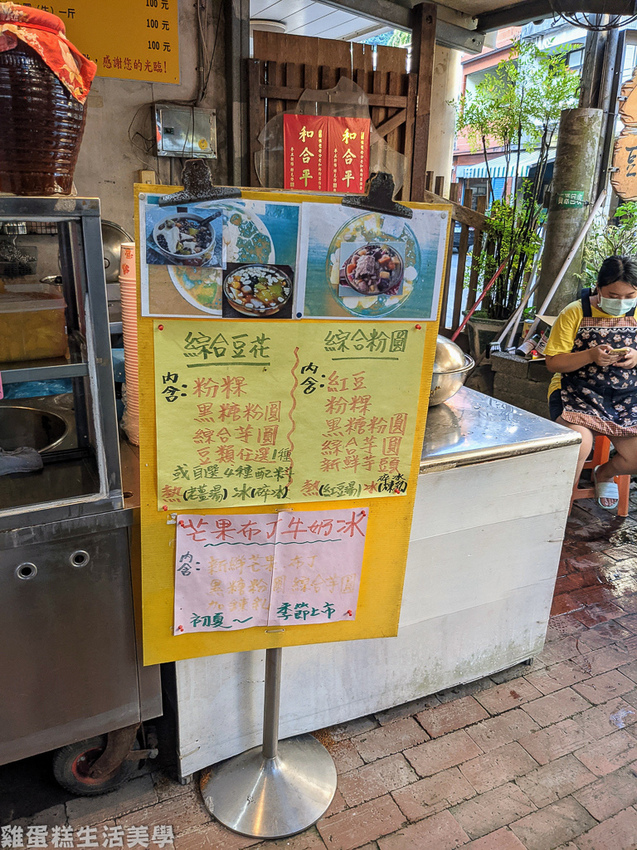 100 元
100 元
100 元
感謝您的光臨!
和合平
和合平
綜合豆花
內含:
粉粿
黑糖粉圓
綜合芋圓
豆類任選1種
或自選4種配料
熱(老薑湯) 冰(碎冰)
綜合粉圓
內含:
紅豆
粉粿
黑糖粉圓
綜合芋圓
新鮮芋頭
熱(紅豆湯) 冰
芒果布丁牛奶冰
內含:
新鮮芒果 布丁
黑糖粉圓 綜合芋圓
初夏~ 季節上市
雞蛋糕生活美學